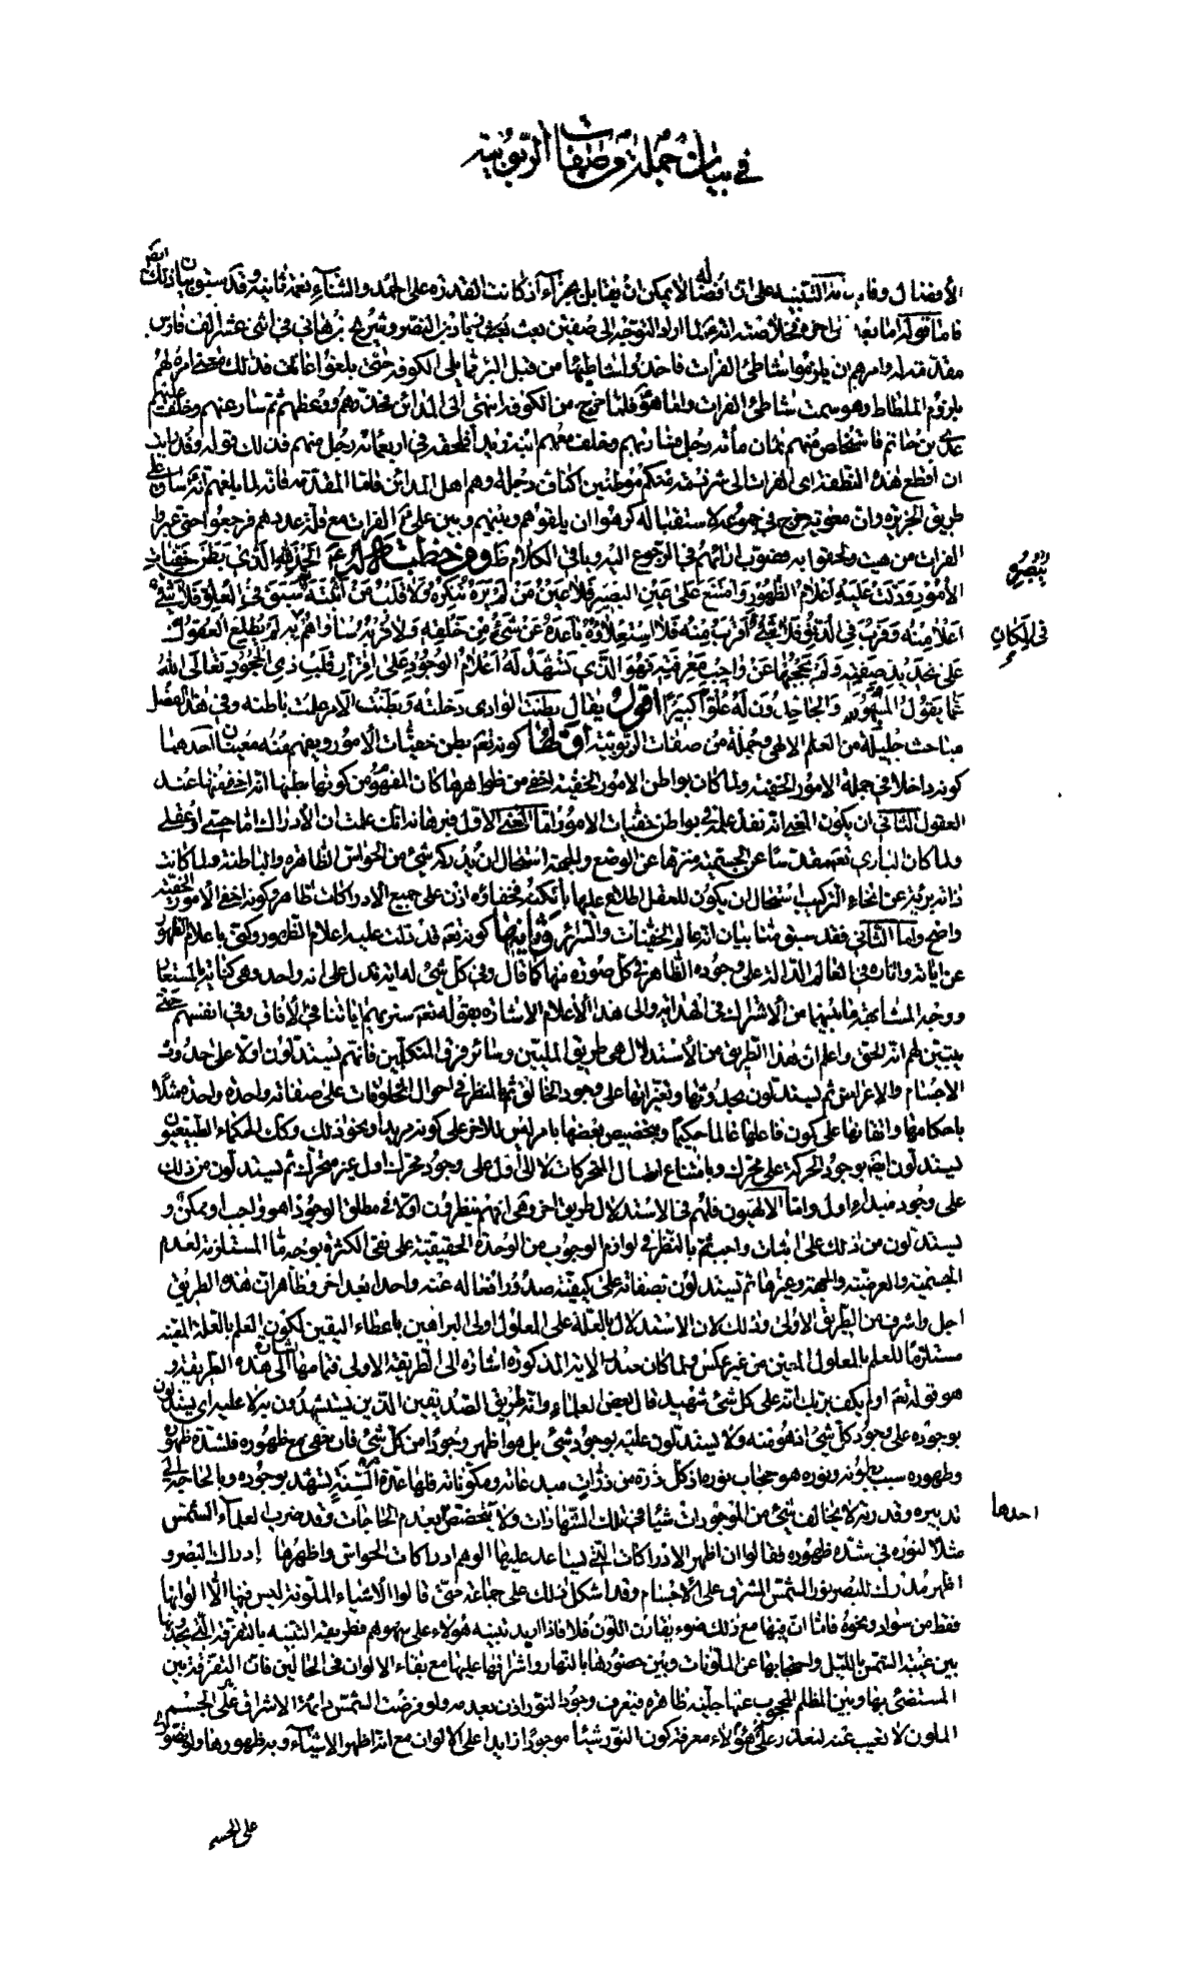 في بيان جملة من صفات الربوبية
الأفضال وفايدته التنبيه على ان افضاله لا يمكن ان يقابل بجزاء اذ كانت القدرة على الحمد والثناء نعمة ثانية وقد سبق بيان ذلك ايضا
فاما قوله اما بعد الى اخره فخلاصته انه ع لما اراد التوجه الى صفين بعث بزياد بن النضر وشريح بن هاني في اثنى عشر الف فارس
مقدمة له وامرهم ان يلزموا شاطئ الفرات فاخذوا شاطيها من قبل البر مما يلي الكوفة حتى بلغوا عانات فذلك معنى امره لهم
بلزوم الملطاط وهو سمت شاطئ الفرات واما هو فلما خرج من الكوفة انتهى الى المدائن فحذرهم ووعظهم ثم سار عنهم وخلف عليهم
عدي بن حاتم فاستخلص منهم ثمان مأة رجل فسار بهم وخلف معهم ابنه زيدا فلحقه في اربعمائة رجل منهم فذلك قوله وقد رايت
ان اقطع هذه النطفة اى الفرات الى شرذمة منكم موطنين اكناف دجلة وهم اهل المدائن فاما المقدمة فانه لما بلغهم انه ع سار على
طريق الجزيرة وان معوية خرج في جموعه لاستقباله كرهوا ان يلقوهم وبينهم وبين علي ع الفرات مع قلة عددهم فرجعوا حتى عبروا
الفرات من هيت ولحقوا به فصوب ارائهم في الرجوع اليه وباقي الكلام ظ ومن خطبة له ع الحمد لله الذي بطن خفيات
الأمور ودلت عليه اعلام الظهور وامتنع على عين البصير فلا عين من لم يره تنكره ولا قلب من اثبته يبصره سبق في العلو فلا شئ
اعلا منه وقرب في الدنو فلا شئ اقرب منه فلا استعلاؤه باعده عن شئ من خلقه ولا قربه ساواهم في المكان به لم يطلع العقول
على تحديد صفته ولم يحجبها عن واجب معرفته فهو الذي تشهد له اعلام الوجود على اقرار قلب ذي الجحود تعالى الله
عما يقول المشبهون به والجاحدون له علوا كبيرا اقول يقال بطنت الوادى دخلته وبطنت الامر علمت باطنه وفي هذا الفصل
مباحث جليلة من العلم الالهي وجملة من صفات الربوبية اولها كونه تعالى بطن خفيات الأمور ويفهم منه معينان احدهما
كونه داخلا في جملة الامور الخفية ولما كان بواطن الامور الخفية اخفى من ظواهرها كان المفهوم من كونها بطنها انه اخفى منها عند
العقول الثاني ان يكون المعنى انه نفذ علمه في بواطن خفيات الامور اما المعنى الاول فبرهانه انك علمت ان الأدراك اما حسي او عقلي
ولما كان الباري تعالى مقدسا عن الجسمية منزها عن الوضع والجهة استحال ان يدركه شئ من الحواس الظاهرة والباطنة ولما كانت
ذاته بريئة عن انحاء التركيب استحال ان يكون للعقل اطلاع عليها بالكنه فخفاؤه اذن على جميع الادراكات ظاهر وكونه اخفى الأمور الخفية
واضح واما الثاني فقد سبق منا بيان انه عالم الخفيات والسرائر وثانيها كونه تعالى قد دلت عليه اعلام الظهور وكنى باعلام الظهور
عن اياته واثاره في العالم الدالة على وجوده الظاهر في كل صورة منها كما قال وفي كل شئ له اية تدل على انه واحد وهى كناية بالمستعار
ووجه المشابهة ما بينهما من الأشتراك في الهداية والى هذه الأعلام الاشارة بقوله تعالى سنريهم اياتنا في الأفاق وفي انفسهم حتى
يتبين لهم انه الحق واعلم ان هذه الطريق من الأستدلال هى طريق المليين وسائر فرق المتكلمين فانهم يستدلون اولا على حدوث
الاجسام والاعراض ثم يستدلون بحدوثها وتغيراتها على وجود الخالق ثم بالنظر في احوال المخلوقات على صفاته واحدة واحدة مثلا
باحكامها واتقانها على كون فاعلها عالما حكيما وبتخصيص بعضها بامر ليس للاخر على كونه مريدا ونحو ذلك وكذلك الحكماء الطبيعيون
يستدلون ايضا بوجود الحركة على محرك وبامتناع اتصال المحركات لا الى اول على وجود محرك اول غير متحرك ثم يستدلون من ذلك
على وجود مبداء اول واما الالهيون فلهم في الاستدلال طريق اخر وهى انهم ينظرون اولا في مطلق الوجود اهو واجب او ممكن و
يستدلون من ذلك على اثبات واجب ثم بالنظر في لوازم الوجوب من الوحدة الحقيقية على نفى الكثرة بوجه ما المستلزمة لعدم
الجسمية والعرضية والجهة وغيرها ثم يستدلون بصفاته على كيفية صدور افعاله عنه واحدا بعد اخر وظاهر ان هذه الطريق
اجل واشرف من الطريق الأولى وذلك لان الاستدلال بالعلة على المعلول اولى البراهين باعطاء اليقين لكون العلم بالعلة المعينة
مستلزما للعلم بالمعلول المعين من غير عكس ولما كان صدر الاية المذكورة اشارة الى الطريقة الاولى فتمامها اشارة الى هذه الطريقة و
هو قوله تعالى اولم يكف بربك انه على كل شئ شهيد قال بعض العلماء وانه طريق الصديقين الذين يستشهدون به لا عليه اى يستدلون
بوجوده على وجود كل شئ اذ هو منه ولا يستدلون عليه بوجود شئ بل هو اظهر وجودا من كل شئ فان خفى مع ظهوره فلشدة ظهوره
وظهوره سبب بطونه ونوره هو حجاب نوره اذ كل ذرة من ذرات مبدعاته ومكوناته فلها عدة السنة تشهد بوجوده وبالحاجة الى
تدبيره وقدرته لا يخالف شئ من الموجودات شيئا في تلك الشهادات ولا يتخصص احدها بعدم الحاجات وقد ضرب العلماء الشمس
مثلا لنوره في شدة ظهوره فقالوا ان اظهر الادراكات التي يساعد عليها الوهم ادراكات الحواس واظهرها ادراك البصر و
اظهر مدرك للبصر نور الشمس المشرق على الأجسام وقد اشكل ذلك على جماعة حتى قالوا الأشياء الملونة ليس فيها الا الوانها
فقط من سواد ونحوه فاما ان فيها مع ذلك ضوء يقارن اللون فلا فاذا اريد تنبيه هؤلاء على سهوهم فطريقة التنبيه بالتفرقة التي يجدونها
بين غيبة الشمس بالليل واحتجابها عن الملونات وبين حضورها بالنهار واشراقها عليها مع بقاء الالوان في الحالين فان التفرقة بين
المستضئ بها وبين المظلم المحجوب عنها جلية ظاهرة فيعرف وجود النور اذن بعدمه ولو فرضت الشمس دائمة الاشراق على الجسم
الملون لا تغيب عنه لتعذر على هؤلاء معرفة كون النور شيئا موجودا زايدا على الالوان مع انه اظهر الاشياء وبه ظهورها ولو تصور
يبصره
في المكان
احدها
على الحسه